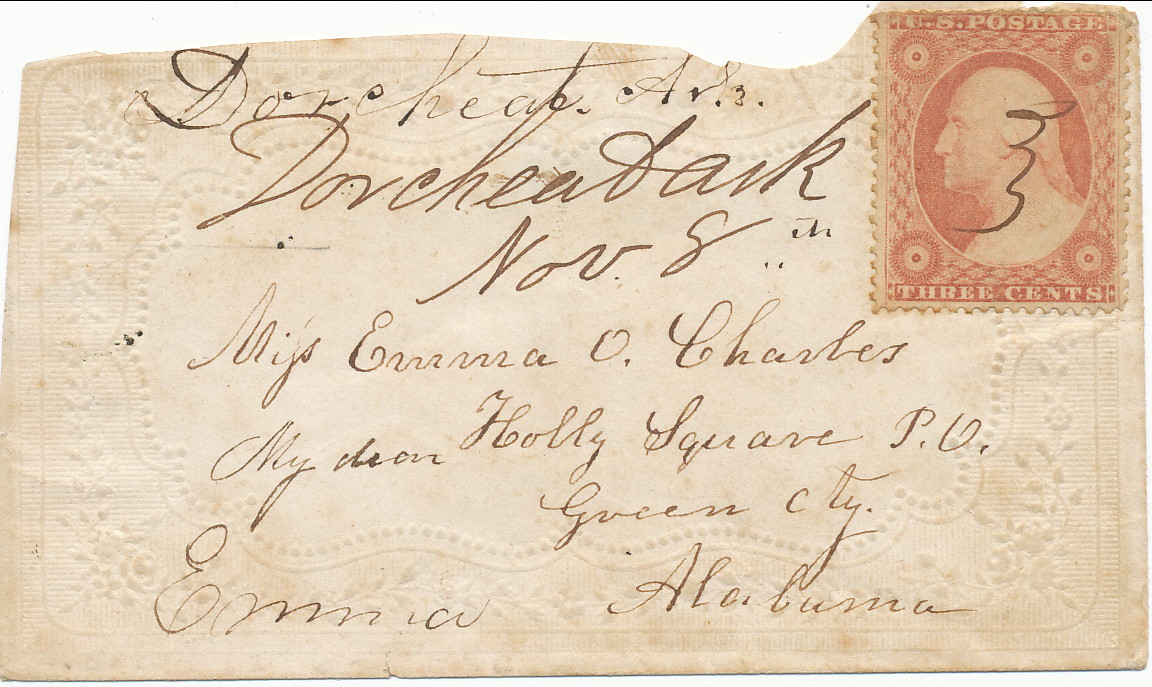 U.S. POSTAGE
Dorcheat. Ark.
Dorcheat Ark
Nov. 8th
3
THREE CENTS
Miss Emma O. Charles
Holly Square P.O.
My dear
Green Cty.
Emma
Alabama